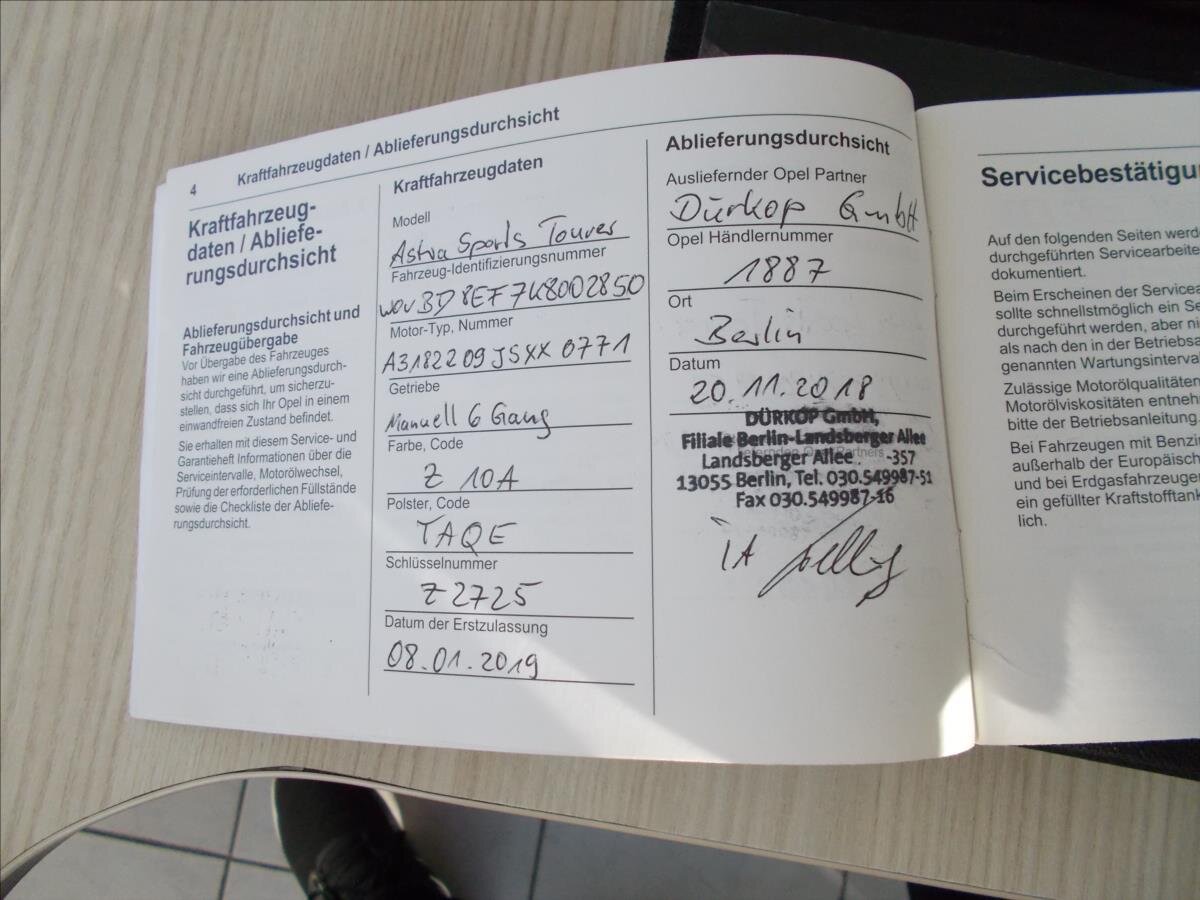 4
Kraftfahrzeugdaten / Ablieferungsdurchsicht
Kraftfahrzeug-
daten / Abliefe-
rungsdurchsicht
Ablieferungsdurchsicht und
Fahrzeugübergabe
Vor Übergabe des Fahrzeuges
haben wir eine Ablieferungsdurch-
sicht durchgeführt, um sicherzu-
stellen, dass sich Ihr Opel in einem
einwandfreien Zustand befindet.
Sie erhalten mit diesem Service- und
Garantieheft Informationen über die
Serviceintervalle, Motorölwechsel,
Prüfung der erforderlichen Füllstände
sowie die Checkliste der Abliefe-
rungsdurchsicht.
Kraftfahrzeugdaten
Modell
Astra Sports Tourer
Fahrzeug-Identifizierungsnummer
WOVBD8EF7K8002850
Motor-Typ, Nummer
A3182209JSXX0771
Getriebe
Manuell 6 Gang
Farbe, Code
Z 10A
Polster, Code
TAQE
Schlüsselnummer
Z2725
Datum der Erstzulassung
08.01.2019
Ablieferungsdurchsicht
Ausliefernder Opel Partner
Dürkop GmbH
Opel Händlernummer
1887
Ort
Berlin
Datum
20.11.2018
DÜRKOP GmbH,
Filiale Berlin-Landsberger Allee
Landsberger Allee -357
13055 Berlin, Tel. 030.549987-51
Fax 030.549987-16
IA
Servicebestätigu
Auf den folgenden Seiten werd
durchgeführten Servicearbeite
dokumentiert.
Beim Erscheinen der Servicea
sollte schnellstmöglich ein Se
durchgeführt werden, aber ni
als nach den in der Betriebsa
genannten Wartungsinterva
Zulässige Motorölqualitäten
Motorölviskositäten entneh
bitte der Betriebsanleitung.
Bei Fahrzeugen mit Benzin
außerhalb der Europäisch
und bei Erdgasfahrzeugen
ein gefüllter Kraftstofftank
lich.